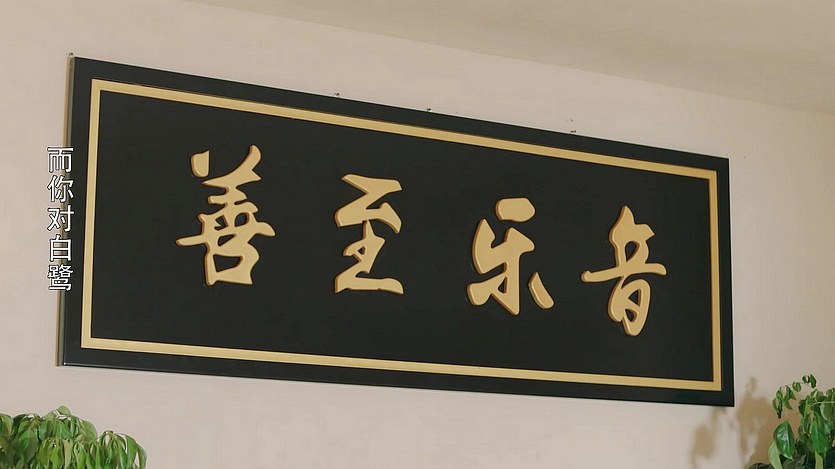 音乐至善
而你对白鹭